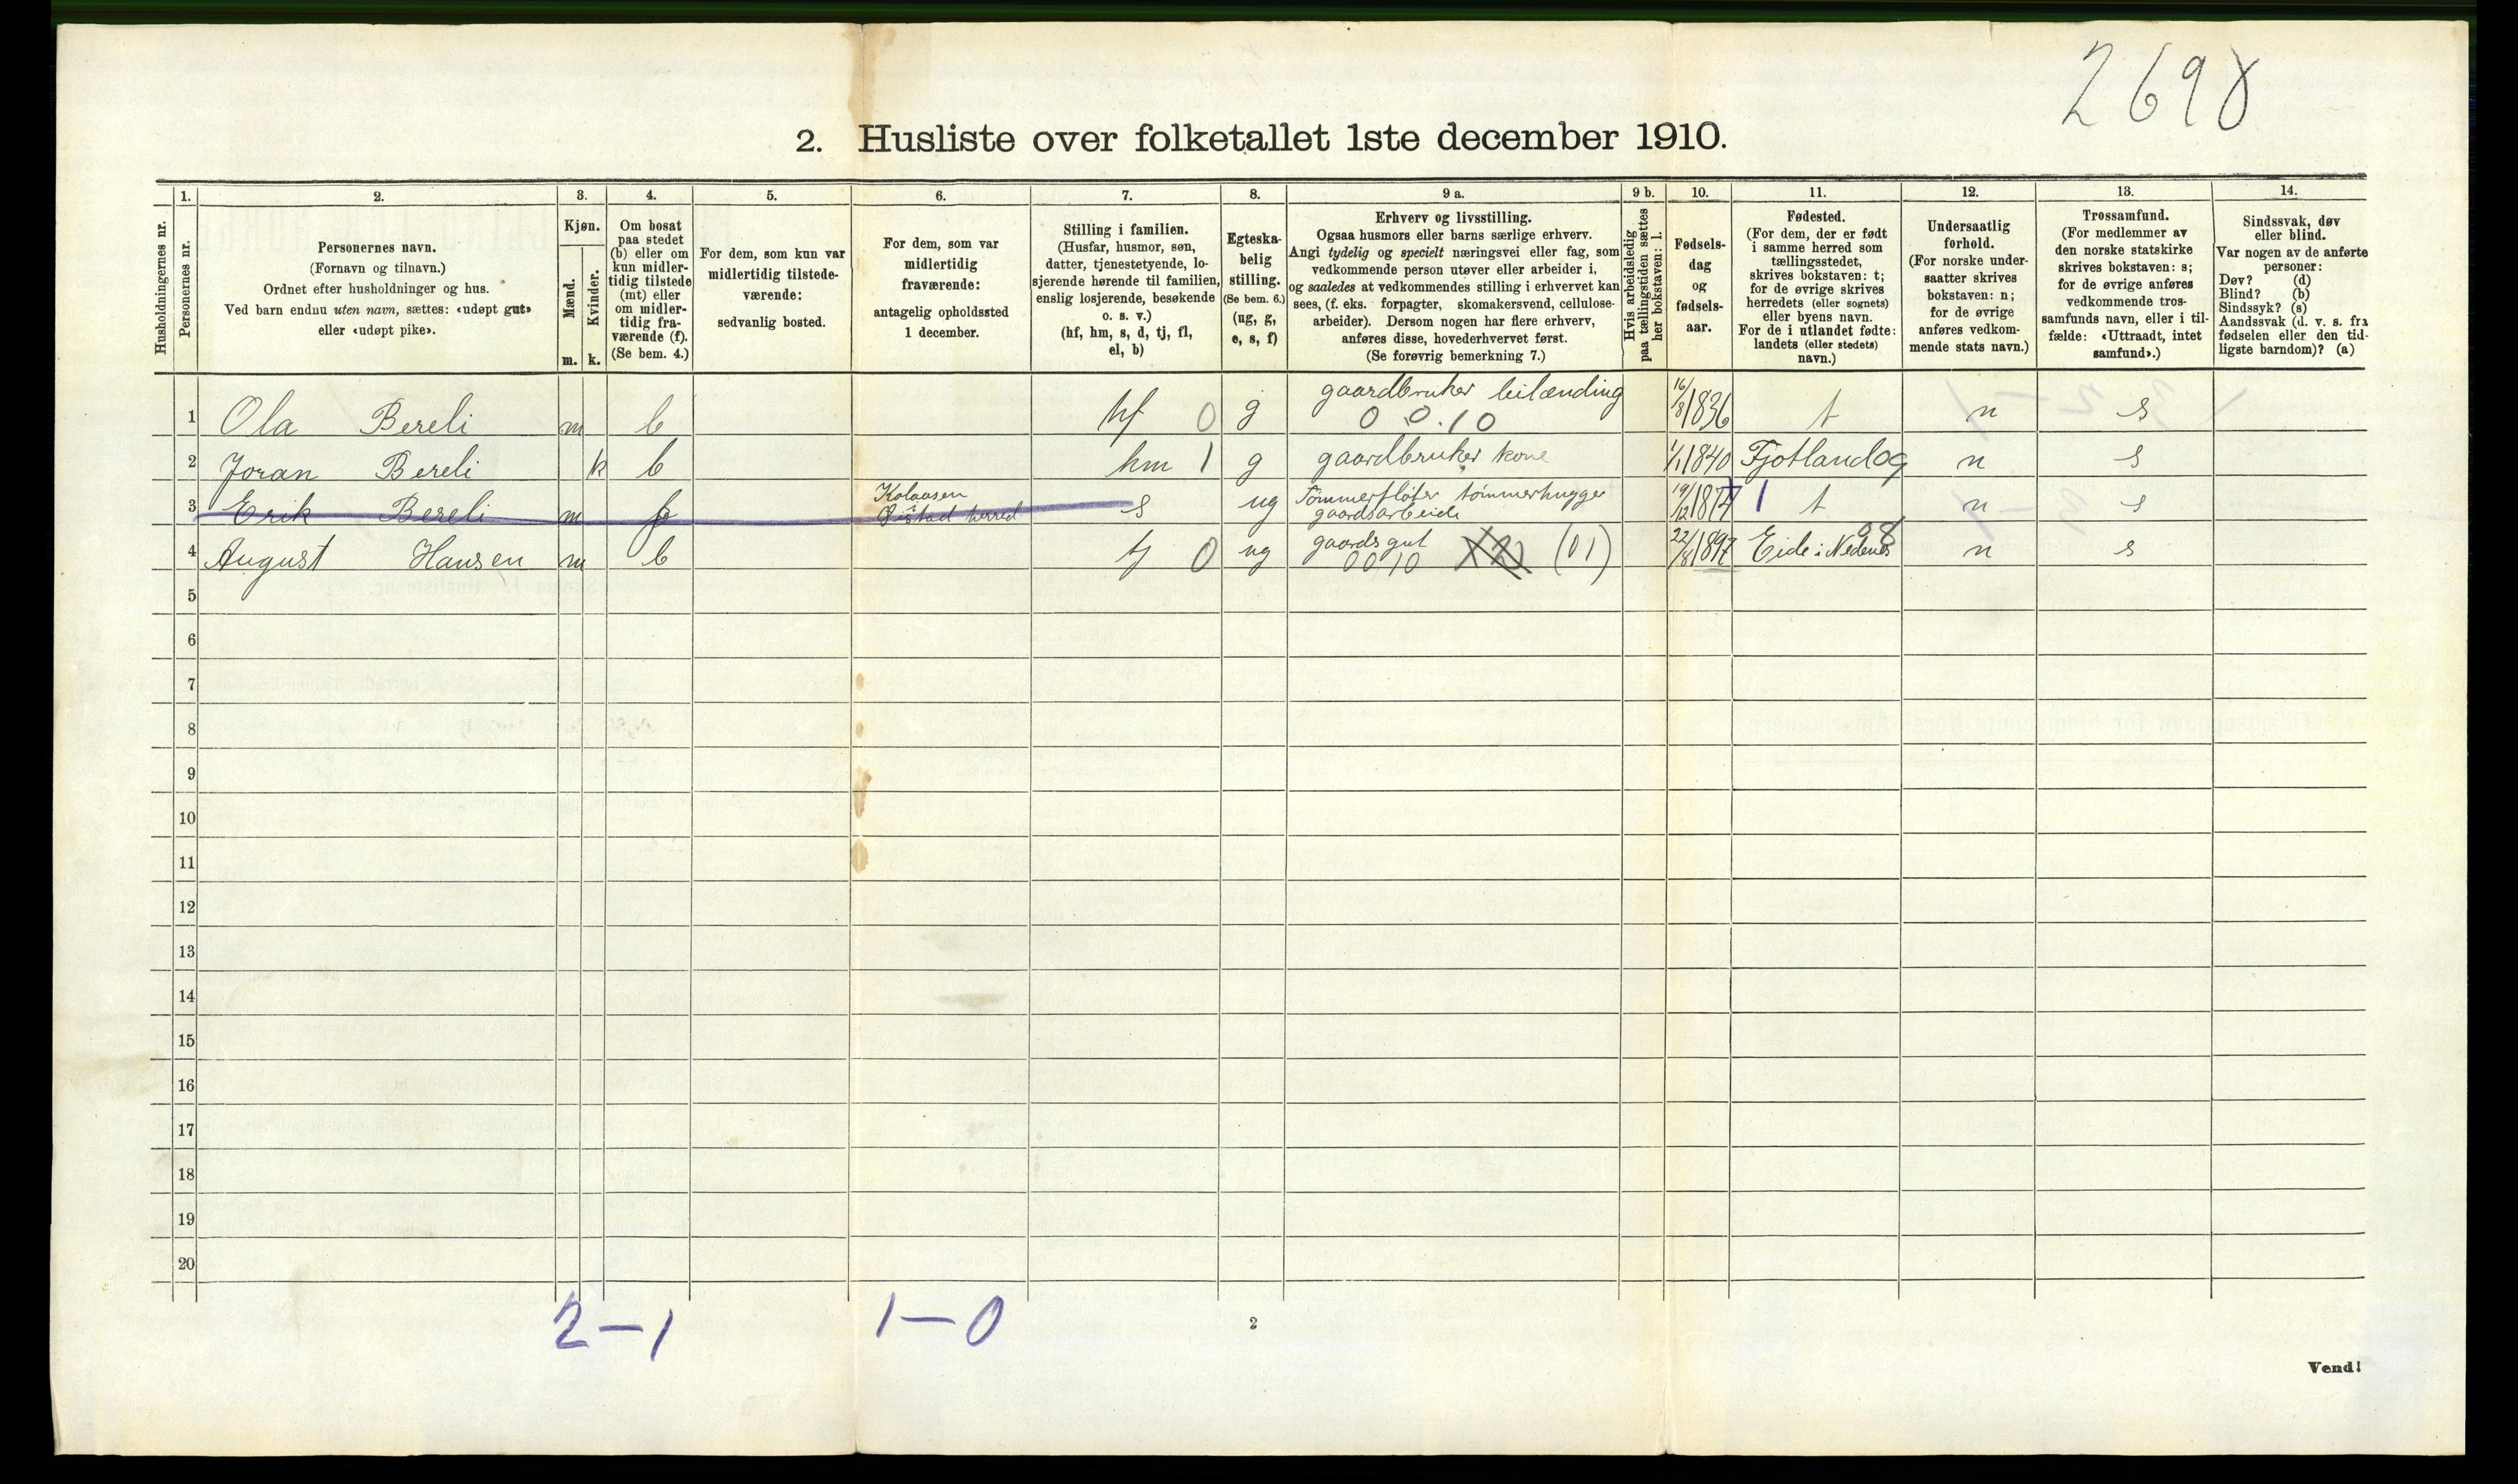 2698
2. Husliste over folketallet 1ste december 1910.
Husholdningernes nr.
1. Personernes nr.
2. Personernes navn. (Fornavn og tilnavn.) Ordnet efter husholdninger og hus. Ved barn endnu uten navn, sættes: «udøpt gut» eller «udøpt pike».
3. Kjøn. Mænd. m. Kvinder. k.
4. Om bosat paa stedet (b) eller om kun midlertidig tilstede (mt) eller om midlertidig fraværende (f). (Se bem. 4.)
5. For dem, som kun var midlertidig tilstedeværende: sedvanlig bosted.
6. For dem, som var midlertidig fraværende: antagelig opholdssted 1 december.
7. Stilling i familien. (Husfar, husmor, søn, datter, tjenestetyende, losjerende hørende til familien, enslig losjerende, besøkende o. s. v.) (hf, hm, s, d, tj, fl, el, b)
8. Egteskabelig stilling. (Se bem. 6.) (ug, g, e, s, f)
9 a. Erhverv og livsstilling. Ogsaa husmors eller barns særlige erhverv. Angi tydelig og specielt næringsvei eller fag, som vedkommende person utøver eller arbeider i, og saaledes at vedkommendes stilling i erhvervet kan sees, (f. eks. forpagter, skomakersvend, cellulosearbeider). Dersom nogen har flere erhverv, anføres disse, hovederhvervet først. (Se forøvrig bemerkning 7.)
9 b. Hvis arbeidsledig paa tællingstiden sættes her bokstaven: l.
10. Fødselsdag og fødselsaar.
11. Fødested. (For dem, der er født i samme herred som tællingsstedet, skrives bokstaven: t; for de øvrige skrives herredets (eller sognets) eller byens navn. For de i utlandet fødte: landets (eller stedets) navn.)
12. Undersaatlig forhold. (For norske undersaatter skrives bokstaven: n; for de øvrige anføres vedkommende stats navn.)
13. Trossamfund. (For medlemmer av den norske statskirke skrives bokstaven: s; for de øvrige anføres vedkommende trossamfunds navn, eller i tilfælde: «Uttraadt, intet samfund».)
14. Sindssvak, døv eller blind. Var nogen av de anførte personer: Døv? (d) Blind? (b) Sindssyk? (s) Aandssvak (d. v. s. fra fødselen eller den tidligste barndom)? (a)
1 Ola Bereli m b hf 0 g gaardbruker leilænding 0 0.10 16/8 1836 t n s
2 Joran Bereli k b hm 1 g gaardbruker kone 1/1 1840 Fjotland 09 n s
3 Erik Bereli m f herred s ug Tømmerfløter tømmerhugger gaardsarbeide 19/12 1877 1 t n s
4 August Hansen m b tj 0 ug gaardsgut 0010 (01) 22/8 1897 Eide i Nedenes 08 n s
5
6
7
8
9
10
11
12
13
14
15
16
17
18
19
20
2-1 1-0
2
Vend!